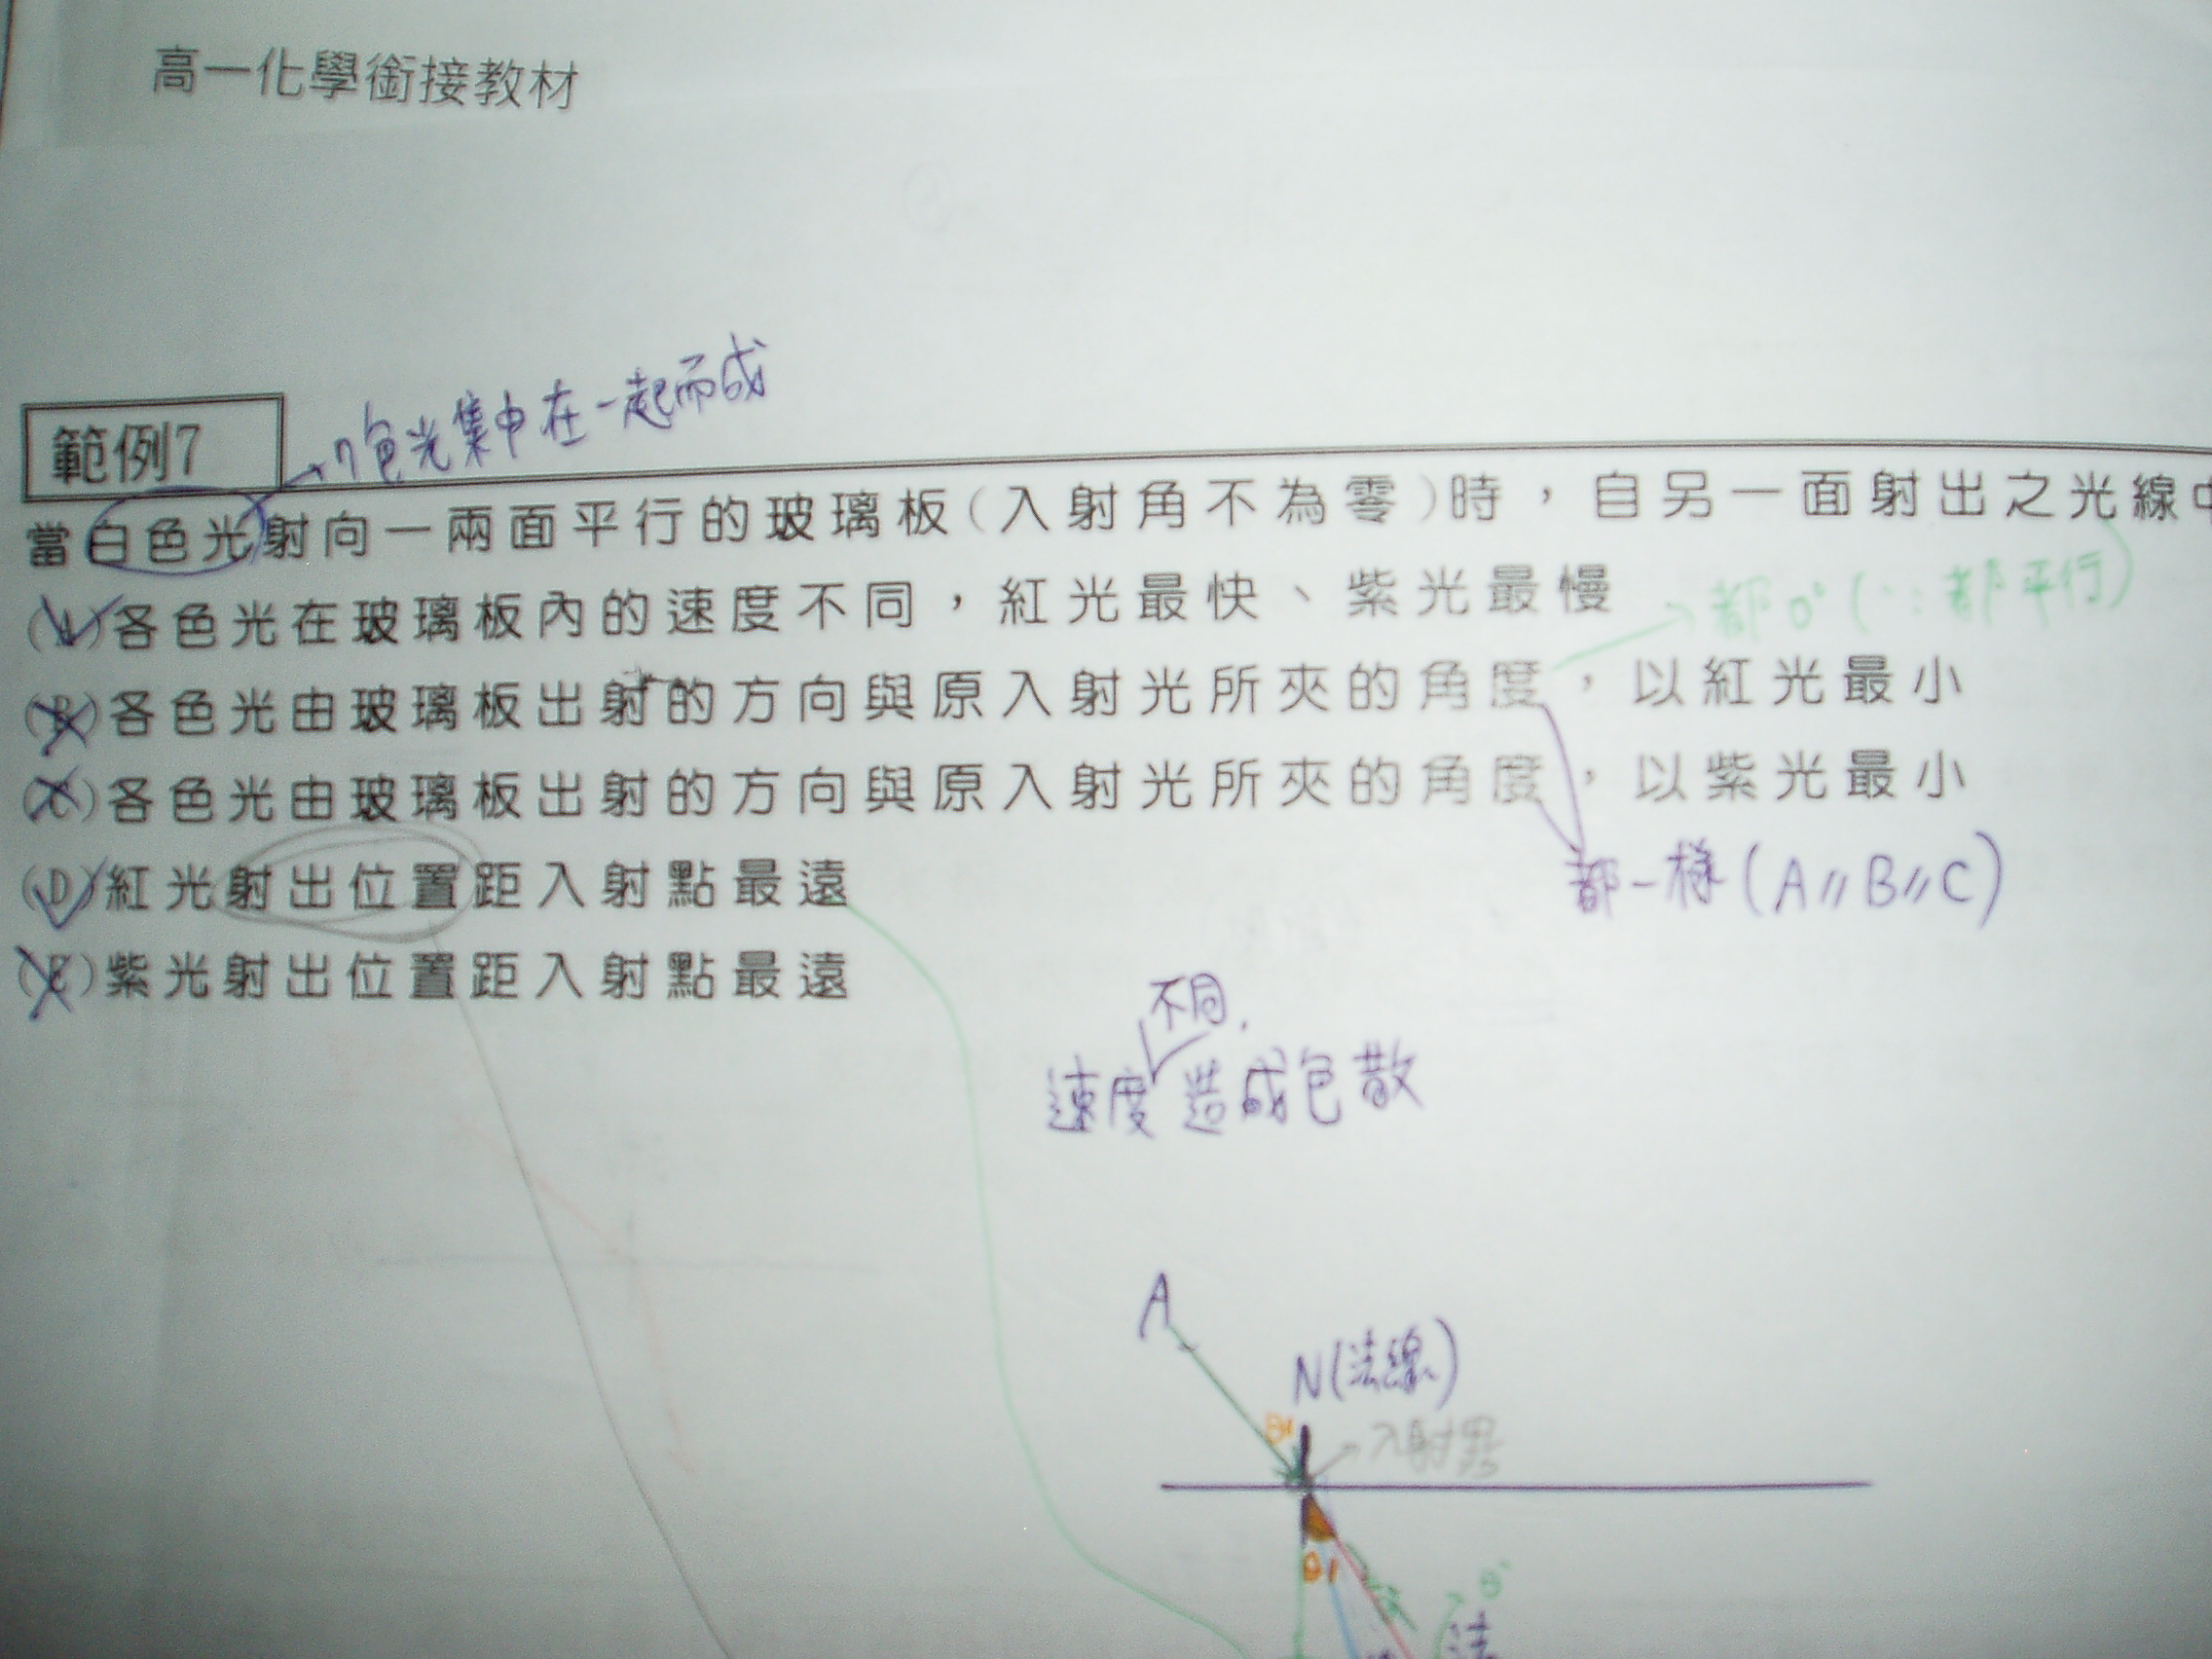 高一化學銜接教材
7色光集中在一起而成
範例7
當白色光射向一兩面平行的玻璃板(入射角不為零)時，自另一面射出之光線中
(A)各色光在玻璃板內的速度不同，紅光最快、紫光最慢
都0°(∵都平行)
(B)各色光由玻璃板出射的方向與原入射光所夾的角度，以紅光最小
(C)各色光由玻璃板出射的方向與原入射光所夾的角度，以紫光最小
都一樣(A//B//C)
(D)紅光射出位置距入射點最遠
(E)紫光射出位置距入射點最遠
不同
速度造成色散
A
N(法線)
θ1
入射點
θ1
θ'
法